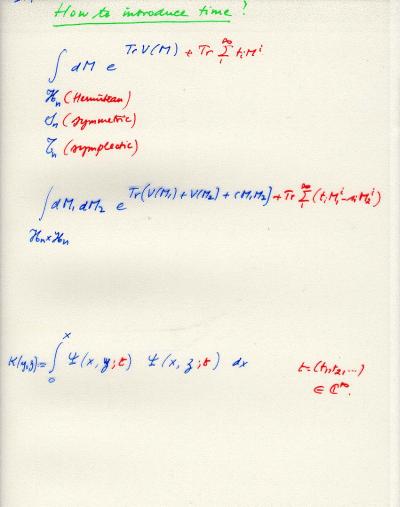 How to introduce time?
∫ dM e^{Tr V(M) + Tr ∑_1^∞ t_i M^i}
ℋ_n (Hermitean)
𝒮_n (symmetric)
𝒯_n (symplectic)
∫ dM_1 dM_2 e^{Tr(V(M_1) + V(M_2) + c M_1 M_2) + Tr ∑_1^∞ (t_i M_1^i - s_i M_2^i)}
ℋ_n × ℋ_n
K(y,z) = ∫_0^x Ψ(x, y; t) Ψ(x, z; t) dx t = (t_1, t_2, ...)
∈ ℂ^∞.